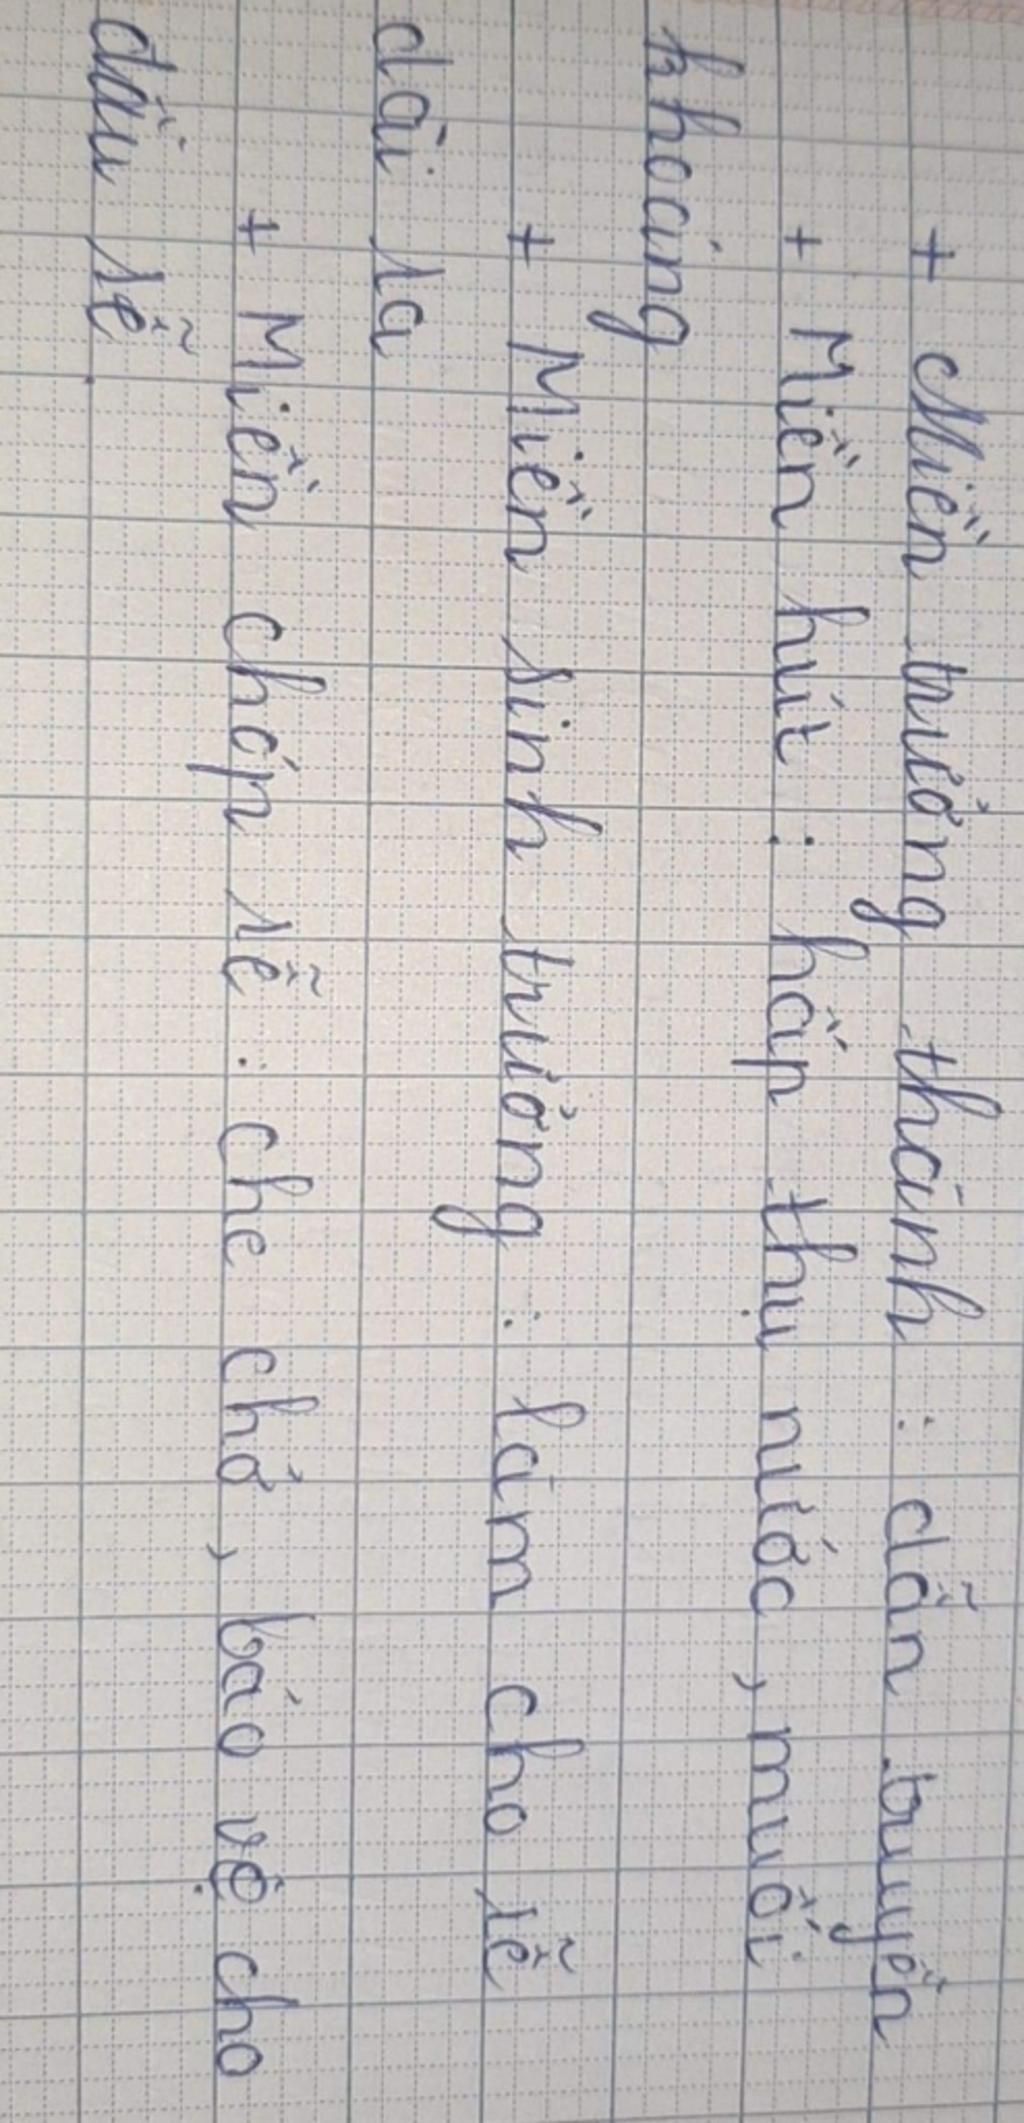 + Miền trưởng thành : dẫn truyền
+ Miền hút : hấp thụ nước, muối
khoáng
+ Miền sinh trưởng : làm cho rễ
dài ra
+ Miền chóp rễ : che chở, bảo vệ cho
đầu rễ.